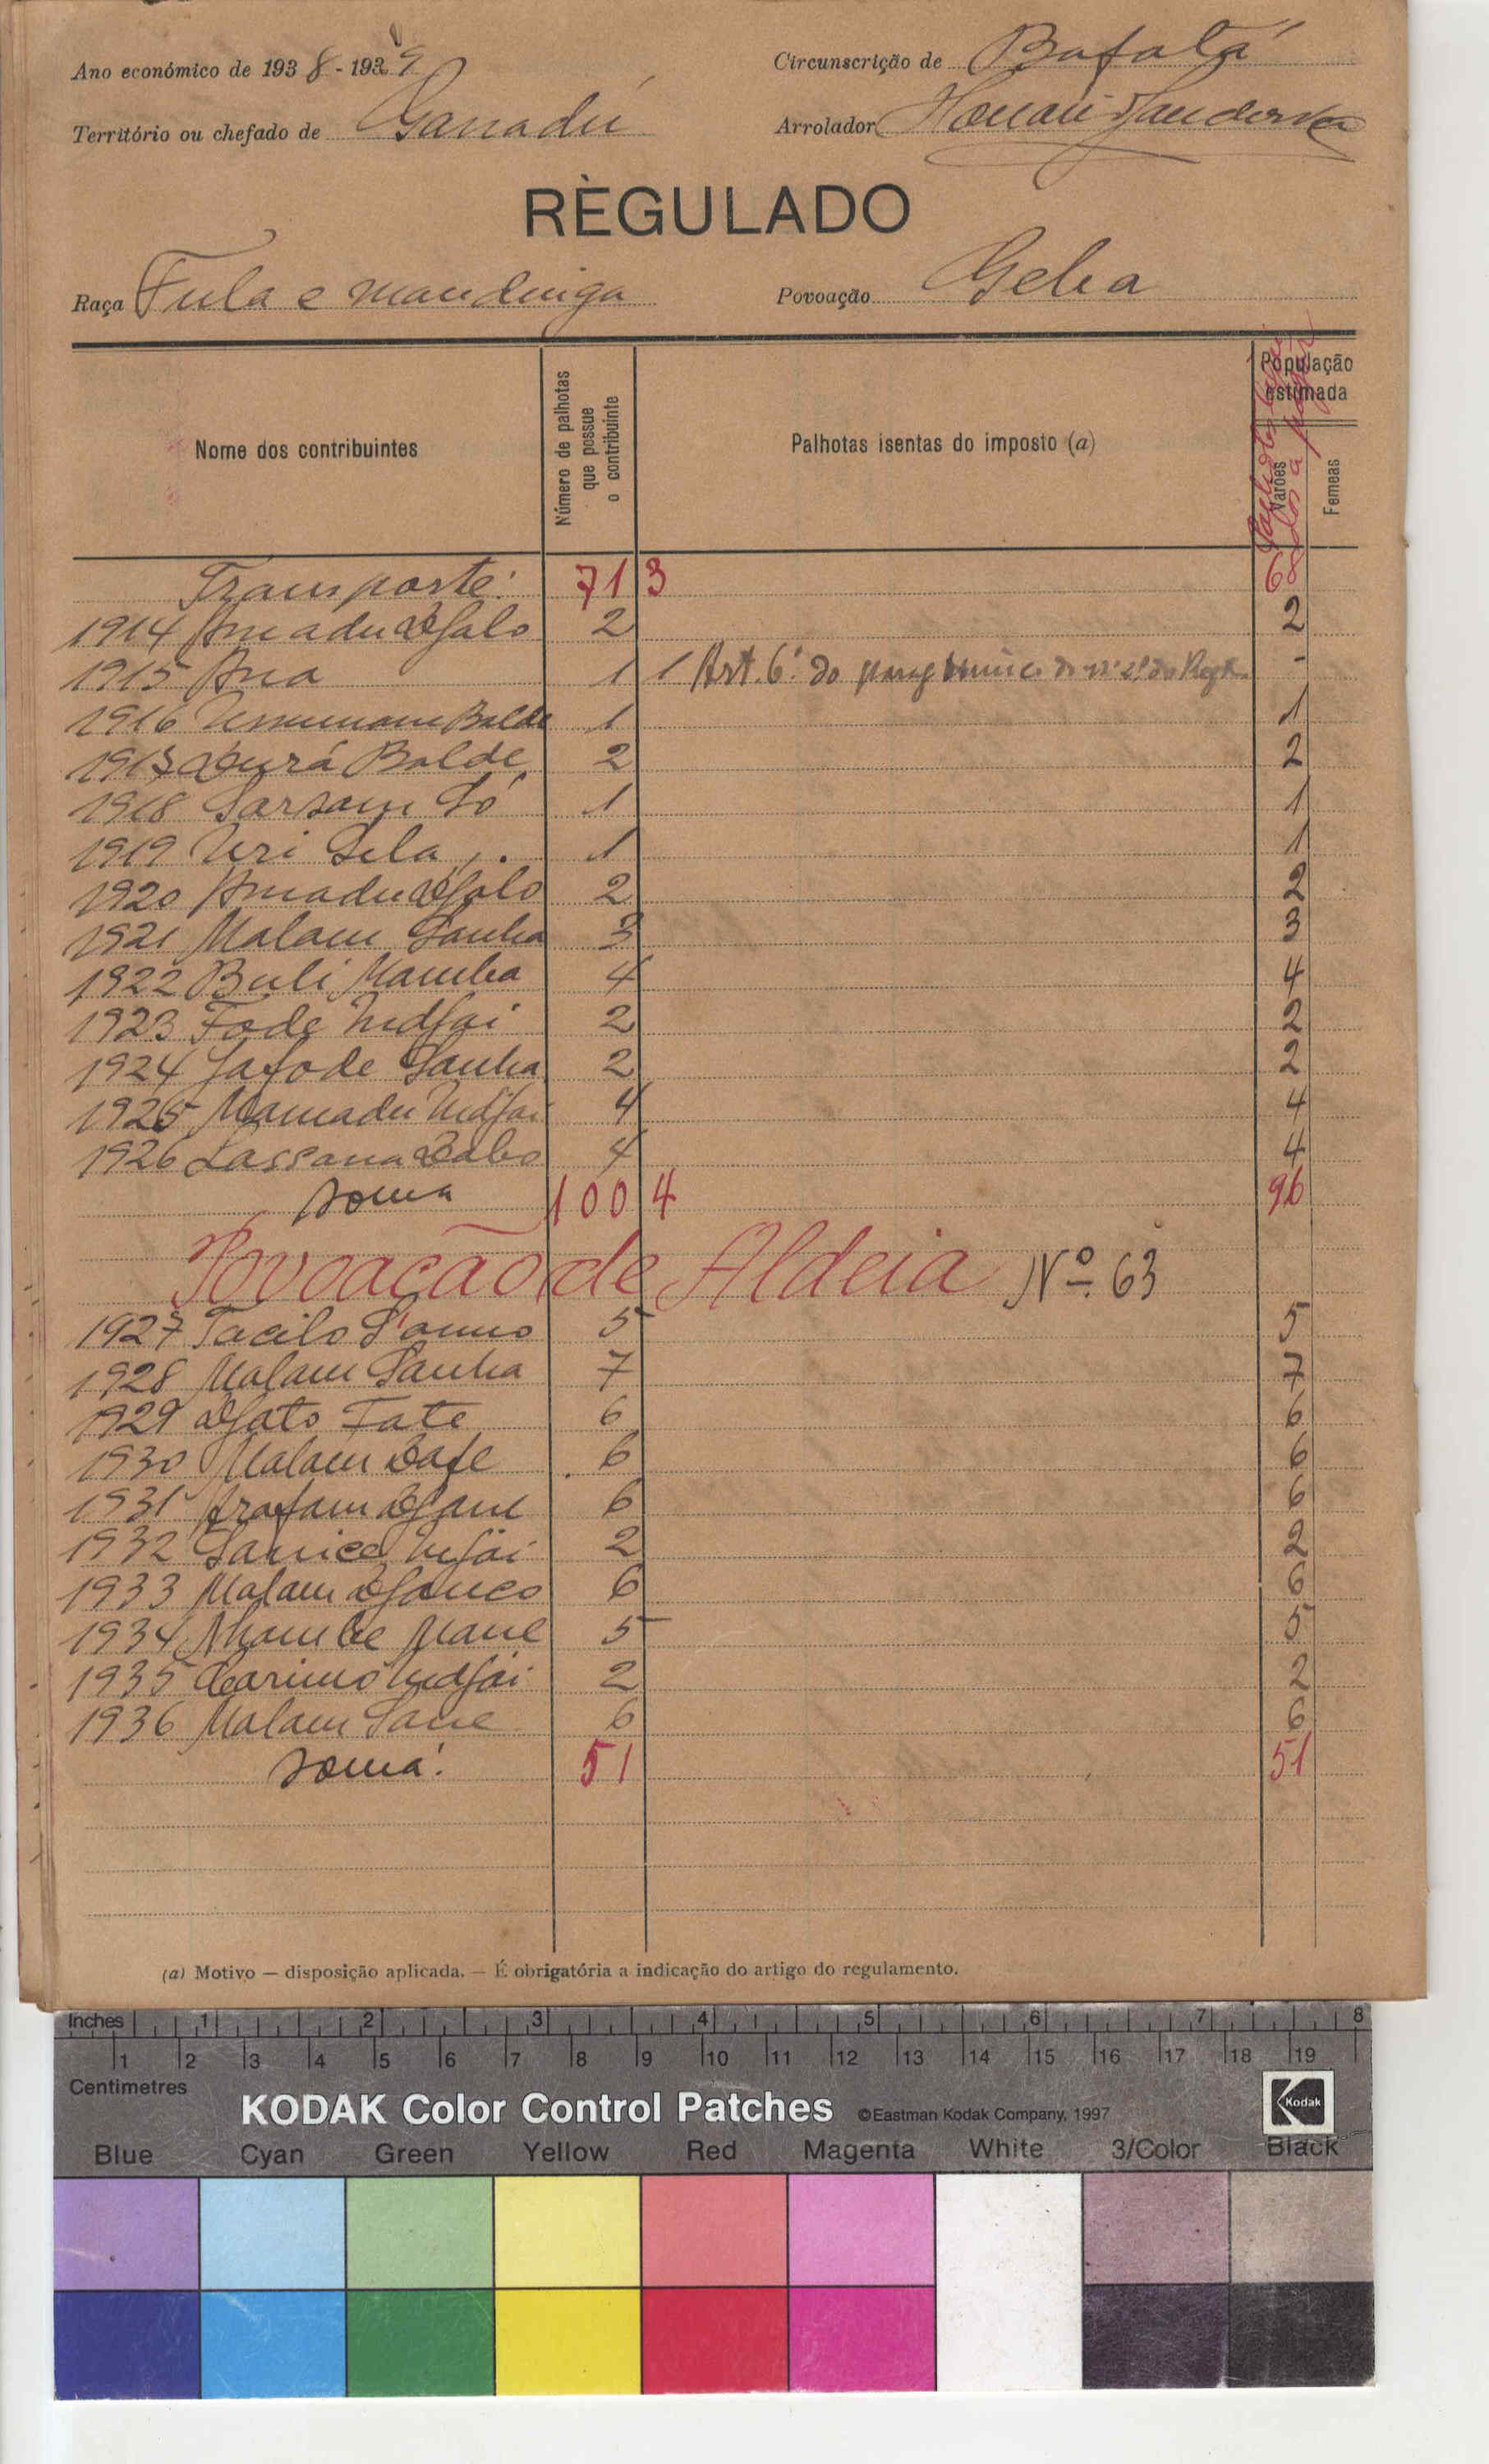 Ano económico de 1938-1939
Circunscrição de Bafatá
Território ou chefado de Ganadú
Arrolador
RÈGULADO
Raça Fula e mandinga
Povoação Geba
Nome dos contribuintes
Número de palhotas que possue o contribuinte
Palhotas isentas do imposto (a)
População estimada
Varões
Femeas
Transporte: 71 3 68
1914 Amadu Djalo 2 2
1915 Ana 1 1 Art. 6º do -
1916 Balde 1 1
Balde 2 2
1918 Só 1 1
1919 Uri Sela 1 1
1920 Amadu Djalo 2 2
1921 Malam Sanha 3 3
1922 Buli Mamba 4 4
1923 Fode Indjai 2 2
1924 Jafode Sanha 2 2
1925 Mamadu Indjai 4 4
1926 Lassana Dabo 4 4
Soma 100 4 96
Povoação de Aldeia Nº 63
1927 Tacilo 5 5
1928 Malam Sanha 7 7
1929 Djato Fate 6 6
1930 Malam Dafe 6 6
1931 Arafam Djane 6 6
1932 2 2
1933 Malam Djanco 6 6
1934 Mane 5 5
1935 Carimo Indjai 2 2
1936 Malam Sane 6 6
Soma: 51 51
(a) Motivo — disposição aplicada. — É obrigatória a indicação do artigo do regulamento.
Inches 1 2 3 4 5 6 7 8
1 2 3 4 5 6 7 8 9 10 11 12 13 14 15 16 17 18 19
Centimetres
KODAK Color Control Patches ©Eastman Kodak Company, 1997 Kodak
Blue Cyan Green Yellow Red Magenta White 3/Color Black